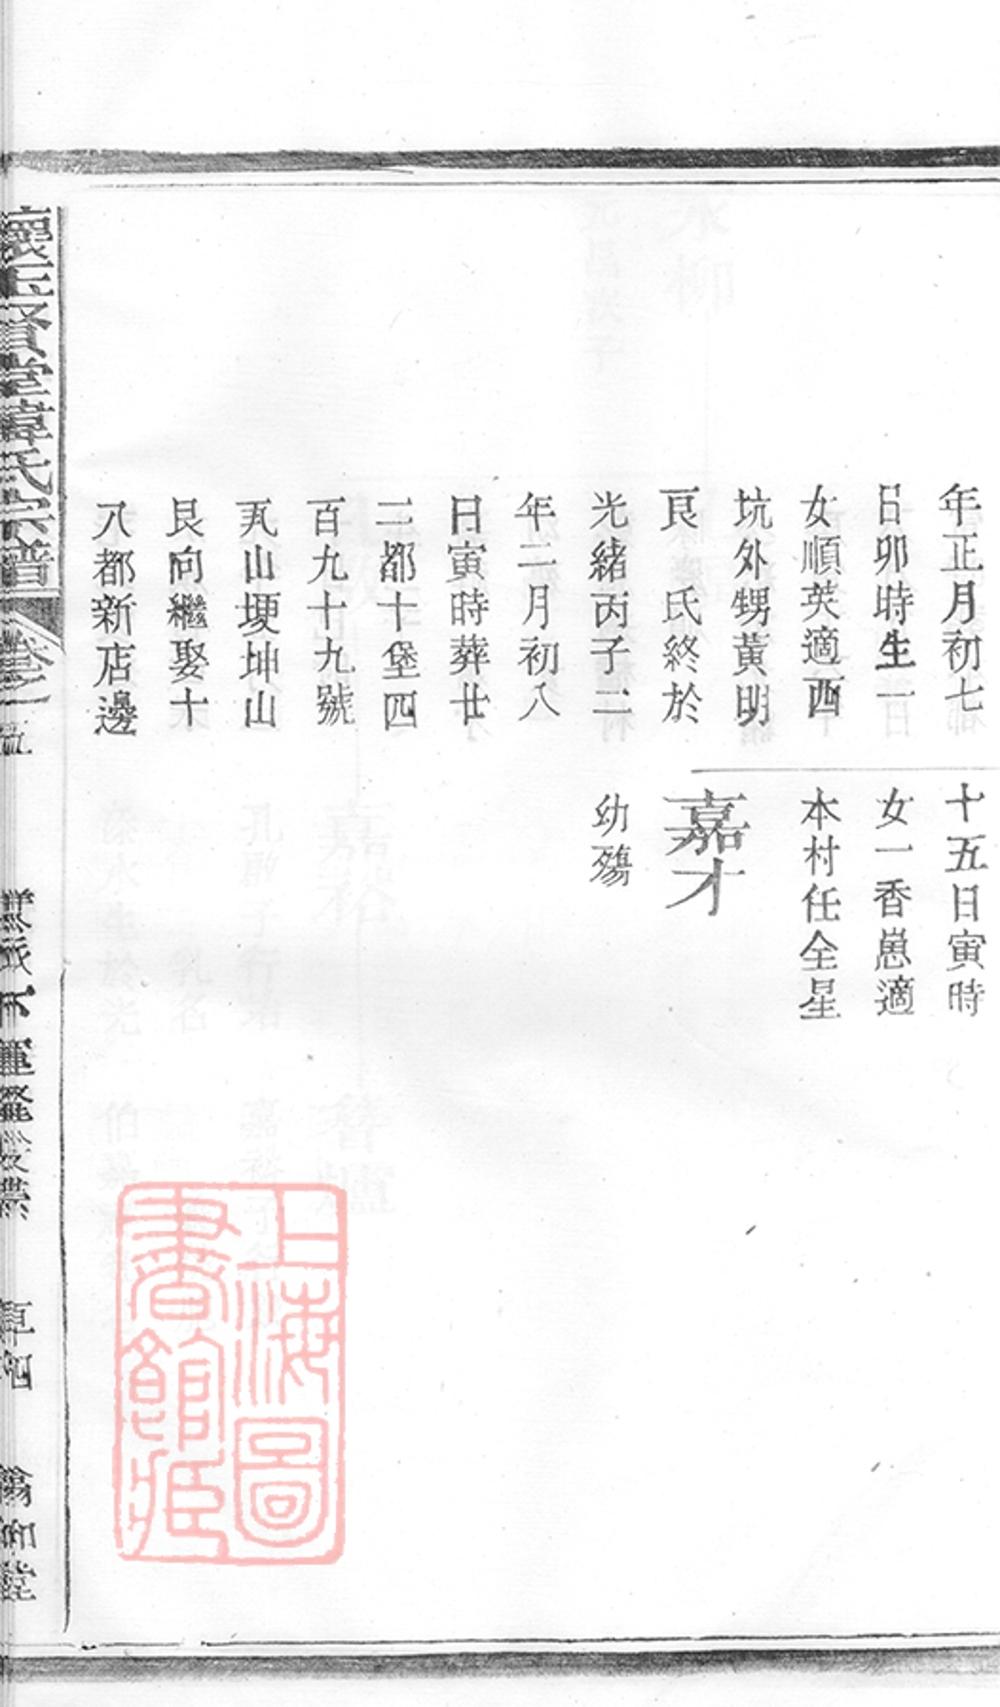 年正月初七
日卯時生一
女順英適西
坑外甥黃明
良　氏終於
光緒丙子二
年二月初八
日寅時葬廿
二都十堡四
百九十九號
瓦山埂坤山
艮向繼娶十
八都新店邊
十五日寅時
女一香崽適
本村任全星
嘉才
幼殤
懷玉賢堂韋氏宗譜
卷之一
上海圖
書館藏